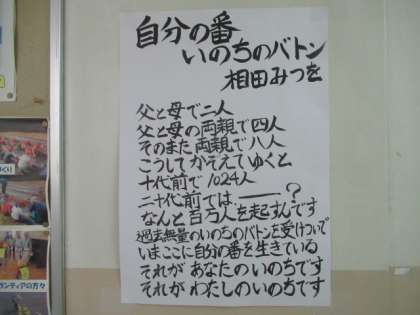 自分の番
いのちのバトン
相田みつを
父と母で二人
父と母の両親で四人
そのまた両親で八人
こうしてかぞえてゆくと
十代前で1024人
二十代前では――?
なんと百万人を起すんです
過去無量のいのちのバトンを受けついで
いまここに自分の番を生きている
それがあなたのいのちです
それがわたしのいのちです
ランティアの方々